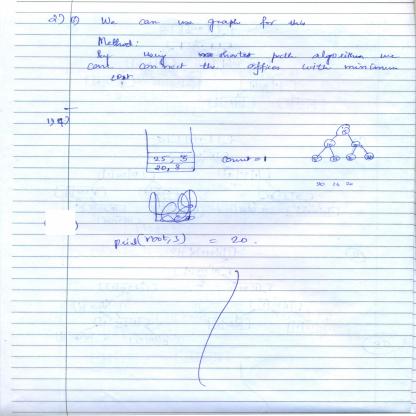 2) (i) We can use graph for this
Method:
By using shortest path algorithm we
can connect the offices with minimum
cost
25, 5
20, 3
count = 1
(root, 3) = 20.